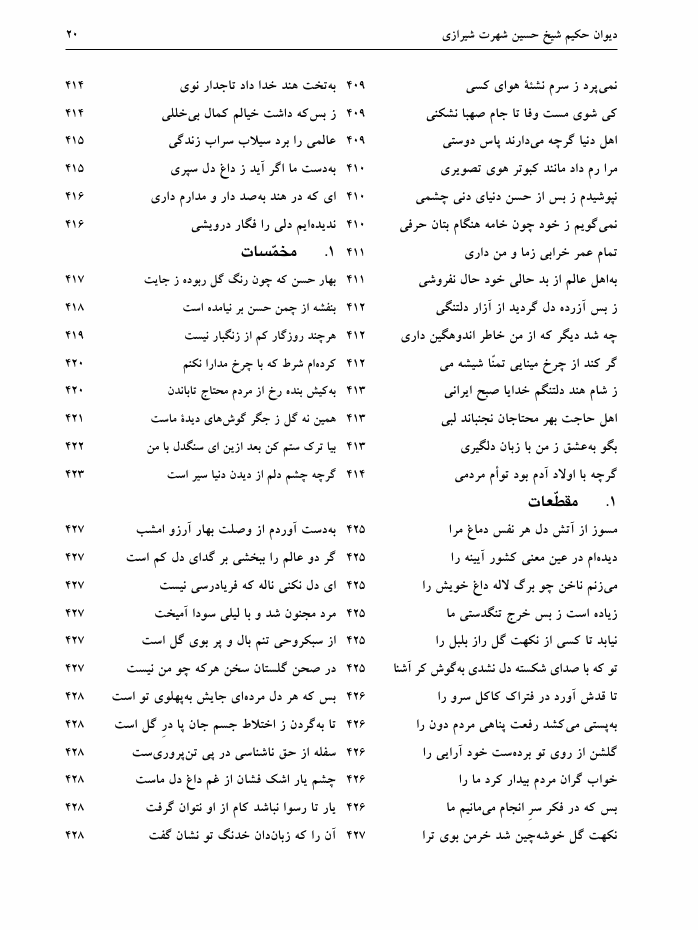 دیوان حکیم شیخ حسین شهرت شیرازی ۲۰
نمی‌پرد ز سرم نشئهٔ هوای کسی ۴۰۹
کی شوی مست وفا تا جام صهبا نشکنی ۴۰۹
اهل دنیا گرچه می‌دارند پاس دوستی ۴۰۹
مرا رم داد مانند کبوتر هوی تصویری ۴۱۰
نپوشیدم ز بس از حسن دنیای دنی چشمی ۴۱۰
نمی‌گویم ز خود چون خامه هنگام بتان حرفی ۴۱۰
تمام عمر خرابی زما و من داری ۴۱۱
به‌اهل عالم از بد حالی خود حال نفروشی ۴۱۱
ز بس آزرده دل گردید از آزار دلتنگی ۴۱۲
چه شد دیگر که از من خاطر اندوهگین داری ۴۱۲
گر کند از چرخ مینایی تمنّا شیشه می ۴۱۲
ز شام هند دلتنگم خدایا صبح ایرانی ۴۱۳
اهل حاجت بهر محتاجان نجنباند لبی ۴۱۳
بگو به‌عشق ز من با زبان دلگیری ۴۱۳
گرچه با اولاد آدم بود توأم مردمی ۴۱۴
به‌تخت هند خدا داد تاجدار نوی ۴۱۴
ز بس‌که داشت خیالم کمال بی‌خللی ۴۱۴
عالمی را برد سیلاب سراب زندگی ۴۱۵
به‌دست ما اگر آید ز داغ دل سپری ۴۱۵
ای که در هند به‌صد دار و مدارم داری ۴۱۶
ندیده‌ایم دلی را فگار درویشی ۴۱۶
۱. مخمّسات
بهار حسن که چون رنگ گل ربوده ز جایت ۴۱۷
بنفشه از چمن حسن بر نیامده است ۴۱۸
هرچند روزگار کم از زنگبار نیست ۴۱۹
کرده‌ام شرط که با چرخ مدارا نکنم ۴۲۰
به‌کیش بنده رخ از مردم محتاج تاباندن ۴۲۰
همین نه گل ز جگر گوش‌های دیدهٔ ماست ۴۲۱
بیا ترک ستم کن بعد ازین ای سنگدل با من ۴۲۲
گرچه چشم دلم از دیدن دنیا سیر است ۴۲۳
۱. مقطّعات
مسوز از آتش دل هر نفس دماغ مرا ۴۲۵
دیده‌ام در عین معنی کشور آیینه را ۴۲۵
می‌زنم ناخن چو برگ لاله داغ خویش را ۴۲۵
زیاده است ز بس خرج تنگدستی ما ۴۲۵
نیابد تا کسی از نکهت گل راز بلبل را ۴۲۵
تو که با صدای شکسته دل نشدی به‌گوش کر آشنا ۴۲۵
تا قدش آورد در فتراک کاکل سرو را ۴۲۶
به‌پستی می‌کشد رفعت پناهی مردم دون را ۴۲۶
گلشن از روی تو برده‌ست خود آرایی را ۴۲۶
خواب گران مردم بیدار کرد ما را ۴۲۶
بس که در فکر سرِ انجام می‌مانیم ما ۴۲۶
نکهت گل خوشه‌چین شد خرمن بوی ترا ۴۲۷
به‌دست آوردم از وصلت بهار آرزو امشب ۴۲۷
گر دو عالم را ببخشی بر گدای دل کم است ۴۲۷
ای دل نکنی ناله که فریادرسی نیست ۴۲۷
مرد مجنون شد و با لیلی سودا آمیخت ۴۲۷
از سبکروحی تنم بال و پر بوی گل است ۴۲۷
در صحن گلستان سخن هرکه چو من نیست ۴۲۷
بس که هر دل مرده‌ای جایش به‌پهلوی تو است ۴۲۸
تا به‌گردن ز اختلاط جسم جان پا درِ گل است ۴۲۸
سفله از حق ناشناسی در پی تن‌پروری‌ست ۴۲۸
چشم یار اشک فشان از غم داغ دل ماست ۴۲۸
یار تا رسوا نباشد کام از او نتوان گرفت ۴۲۸
آن را که زبان‌دان خدنگ تو نشان گفت ۴۲۸